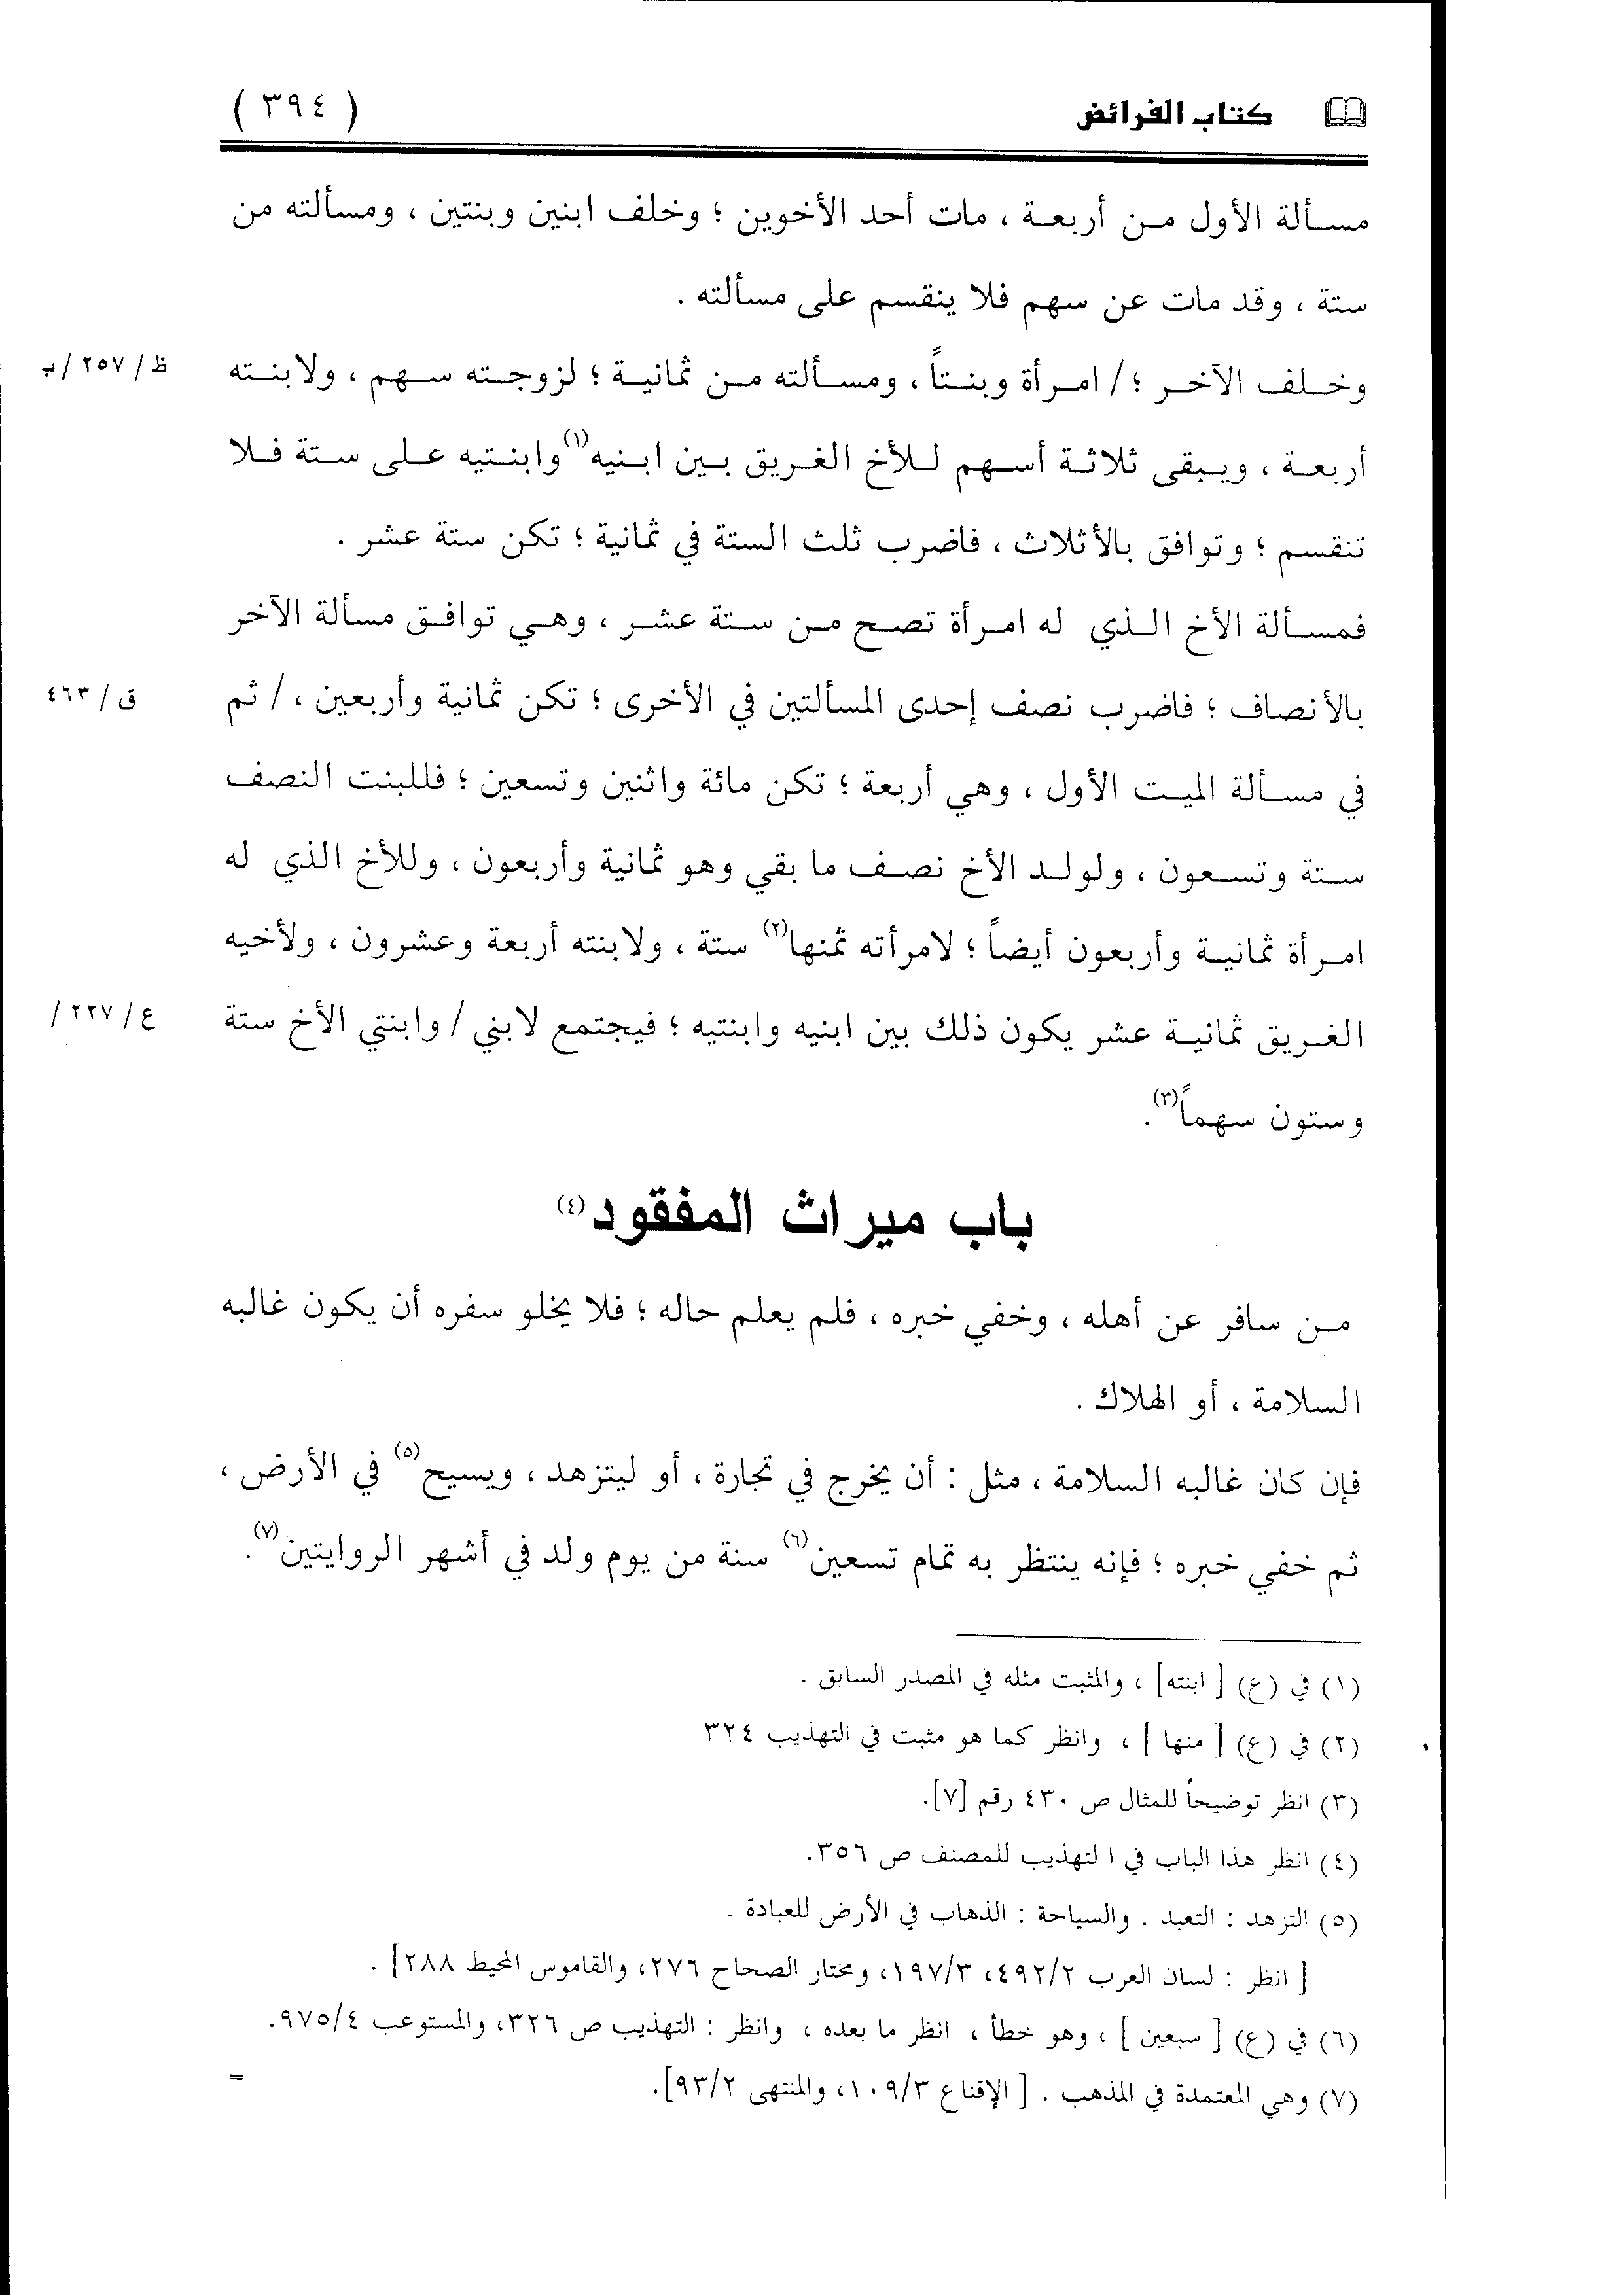 كتاب الفرائض
( ٣٩٤ )
مسألة الأول من أربعة ، مات أحد الأخوين ؛ وخلف ابنين وبنتين ، ومسألته من
ستة ، وقد مات عن سهم فلا ينقسم على مسألته .
وخلف الآخر ؛ / امرأة وبنتاً ، ومسألته من ثمانية ؛ لزوجته سهم ، ولابنته
ظ / ٢٥٧ /ب
أربعة ، ويبقى ثلاثة أسهم للأخ الغريق بين ابنيه(١) وابنتيه على ستة فلا
تنقسم ؛ وتوافق بالأثلاث ، فاضرب ثلث الستة في ثمانية ؛ تكن ستة عشر .
فمسألة الأخ الذي له امرأة تصح من ستة عشر ، وهي توافق مسألة الآخر
بالأنصاف ؛ فاضرب نصف إحدى المسألتين في الأخرى ؛ تكن ثمانية وأربعين ، / ثم
ق / ٤٦٣
في مسألة الميت الأول ، وهي أربعة ؛ تكن مائة واثنين وتسعين ؛ فللبنت النصف
ستة وتسعون ، ولولد الأخ نصف ما بقي وهو ثمانية وأربعون ، وللأخ الذي له
امرأة ثمانية وأربعون أيضاً ؛ لامرأته ثمنها(٢) ستة ، ولابنته أربعة وعشرون ، ولأخيه
الغريق ثمانية عشر يكون ذلك بين ابنيه وابنتيه ؛ فيجتمع لابني / وابنتي الأخ ستة
ع / ٢٢٧ /
وستون سهماً(٣).
باب ميراث المفقود(٤)
من سافر عن أهله ، وخفي خبره ، فلم يعلم حاله ؛ فلا يخلو سفره أن يكون غالبه
السلامة ، أو الهلاك .
فإن كان غالبه السلامة ، مثل : أن يخرج في تجارة ، أو ليتزهد ، ويسيح(٥) في الأرض ،
ثم خفي خبره ؛ فإنه ينتظر به تمام تسعين(٦) سنة من يوم ولد في أشهر الروايتين(٧).
(١) في (ع) [ ابنته] ، والمثبت مثله في المصدر السابق .
(٢) في (ع) [ منها ] ، وانظر كما هو مثبت في التهذيب ٣٢٤
(٣) انظر توضيحاً للمثال ص ٤٣٠ رقم [٧].
(٤) انظر هذا الباب في ا لتهذيب للمصنف ص ٣٥٦.
(٥) التزهد : التعبد . والسياحة : الذهاب في الأرض للعبادة .
[ انظر : لسان العرب ٤٩٢/٢، ١٩٧/٣، ومختار الصحاح ٢٧٦، والقاموس المحيط ٢٨٨] .
(٦) في (ع) [ سبعين ] ، وهو خطأ ، انظر ما بعده ، وانظر : التهذيب ص ٣٢٦، والمستوعب ٩٧٥/٤.
(٧) وهي المعتمدة في المذهب . [ الإقناع ١٠٩/٣، والمنتهى ٩٣/٢].
=